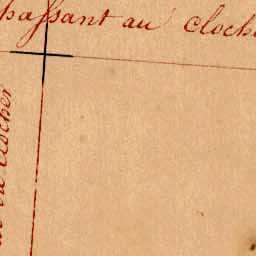 passant au cloche
du clocher